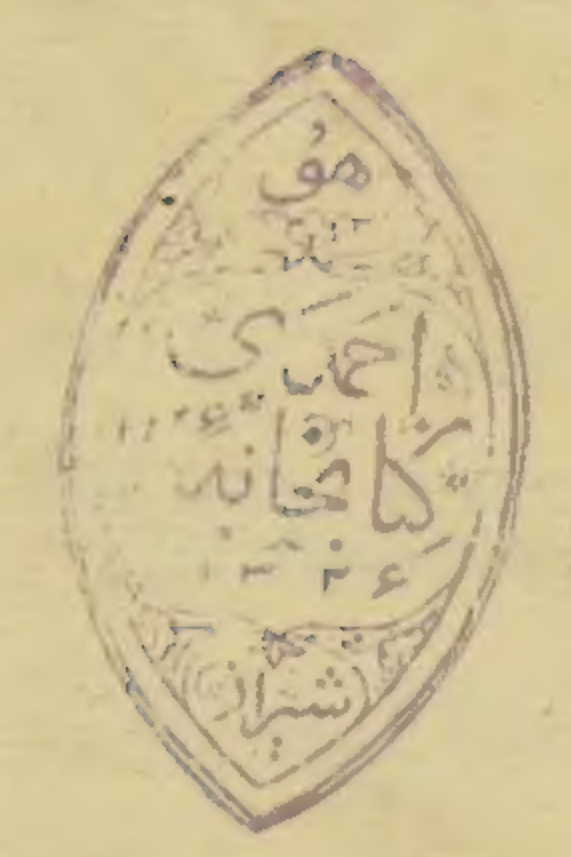 هو
احمدی
کتابخانه
۱۳۲۶
شیراز